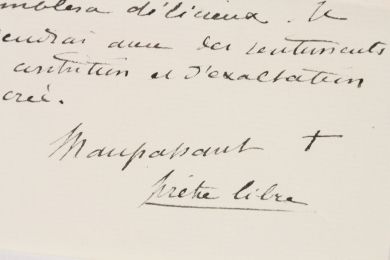 mblera délicieux. Je
endrai avec des sentiments
contrition et d'exaltation
crée.
Maupassant +
prêtre libre